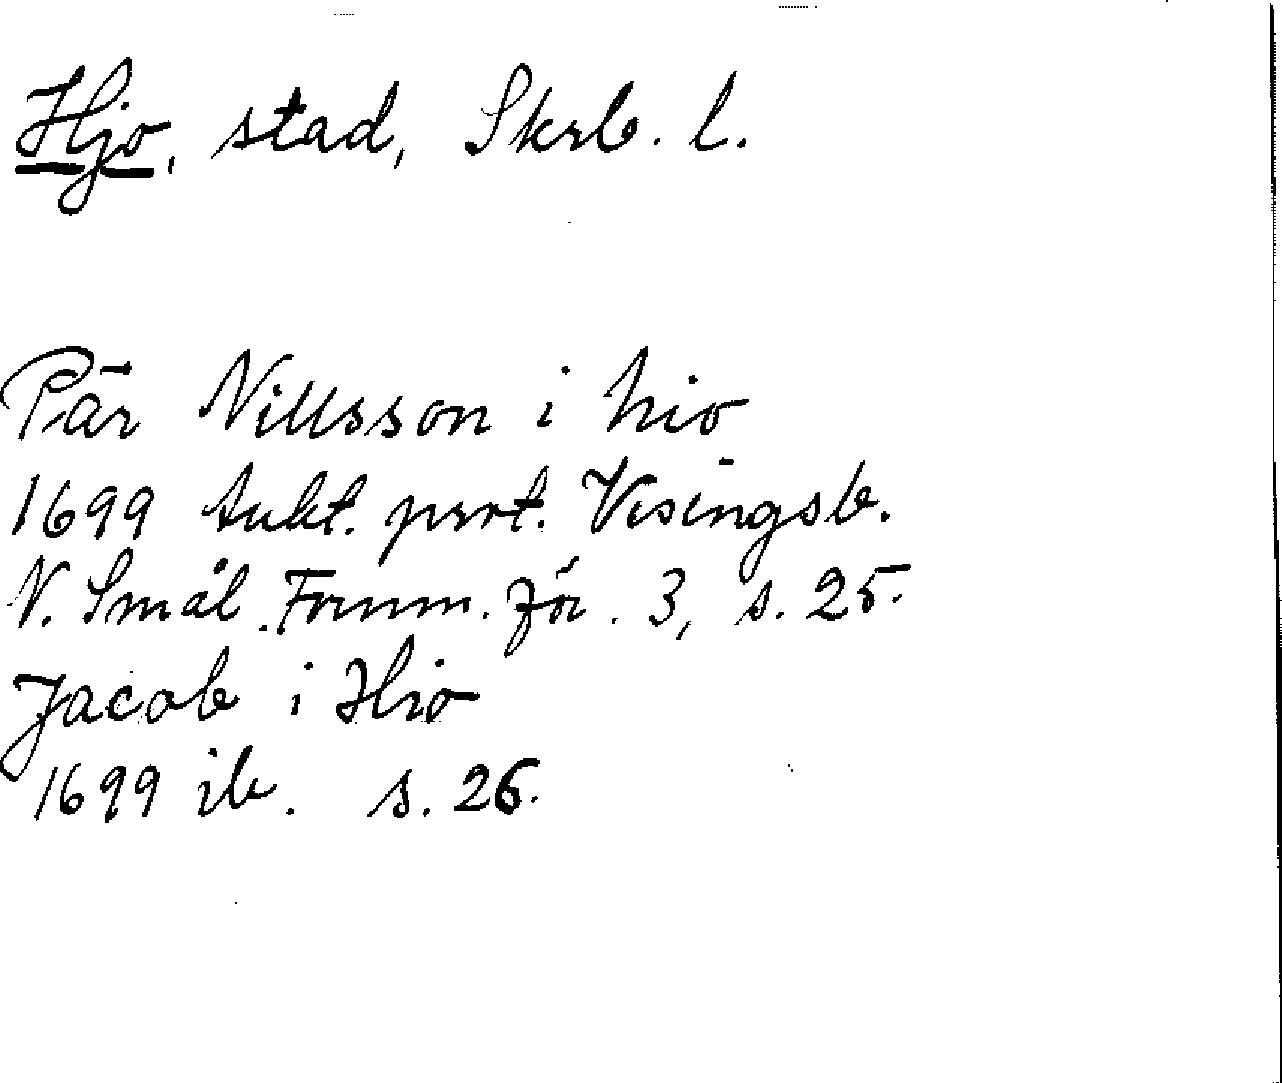 Hjo, stad, Skrb. l.
Pär Nillsson i hio
1699 Aukt. prot. Visingsb.
N. Smål. Fornm. för. 3, s. 25.
Jacob i Hio
1699 ib. s. 26.